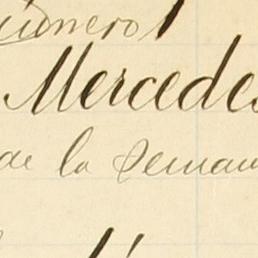 número 1
Mercedes
de la Seman